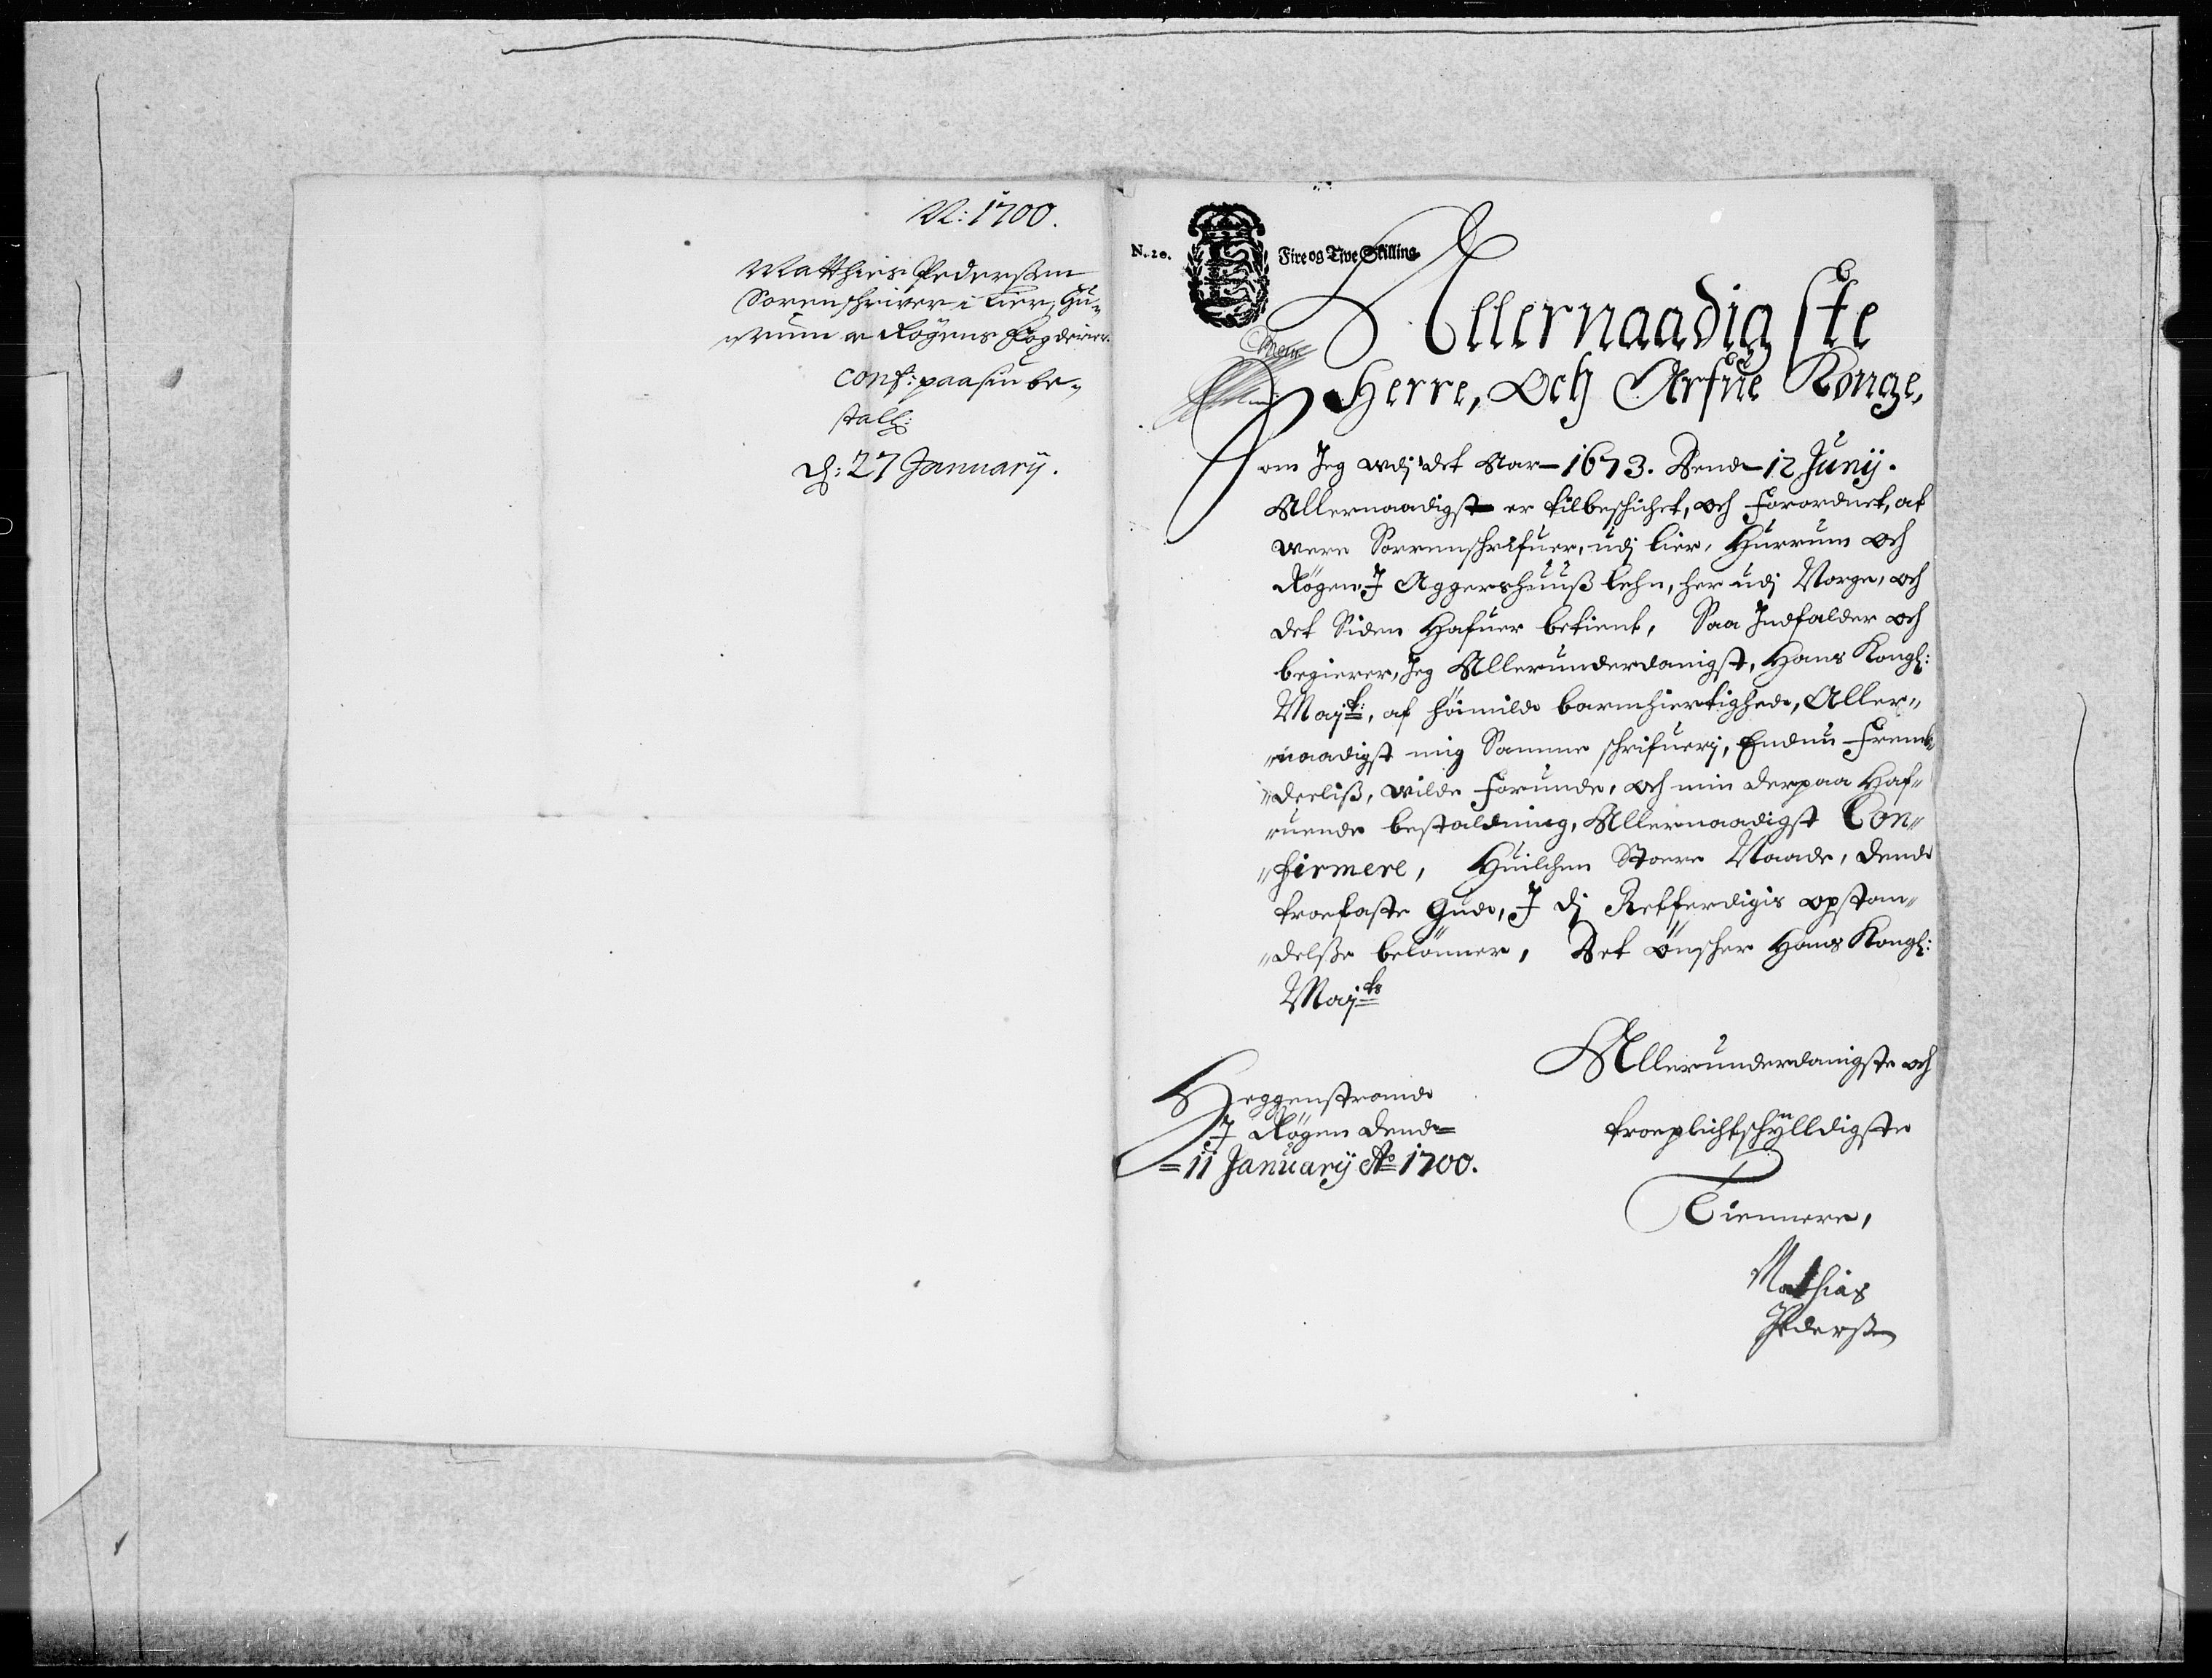 N: 1700.
Matthies Pedersøn
Sorenschriver i Lier, Hu-
rum oc Røgens Fogderier
conf: paa sin be-
stall:
d: 27 January.
N. 20.
Fire og Tive Skilling
Allernaadigste
Herre, Och Arfue Konge,
Som Jeg udj det Aar 1673. Dend 12 Junij.
Allernaadigst er tilbeschichet, och Forordnet, at
were Sorrenschrifuer, udj Lier, Hurrum och
Røgen J Aggershuuß Lehn, her udj Norge, och
det Siden Hafuer betient, Saa Indfalder och
begierer, Jeg Allerunderdanigst, Hans Kongl:
Maj:t, af höimilde barmhiertighed, Aller"
"naadigst mig Samme schrifuerj, Endnu Frem"
"deeliß, wilde Forunde, och min derpaa Haf"
"uende bestaldning, Allernaadigst Con"
"firmere, Huilchen Stoere Naade, dend
troefaste Gud, J dj Retferdigis opstan"
"delße belönner, Det ønscher Hans Kongl:
Maj:ts
Allerunderdanigste och
troeplichtschylldigste
Tiennere,
Mathias
Pedersen
Heggenstrand
J Røgen dend
= 11 January Ao 1700.